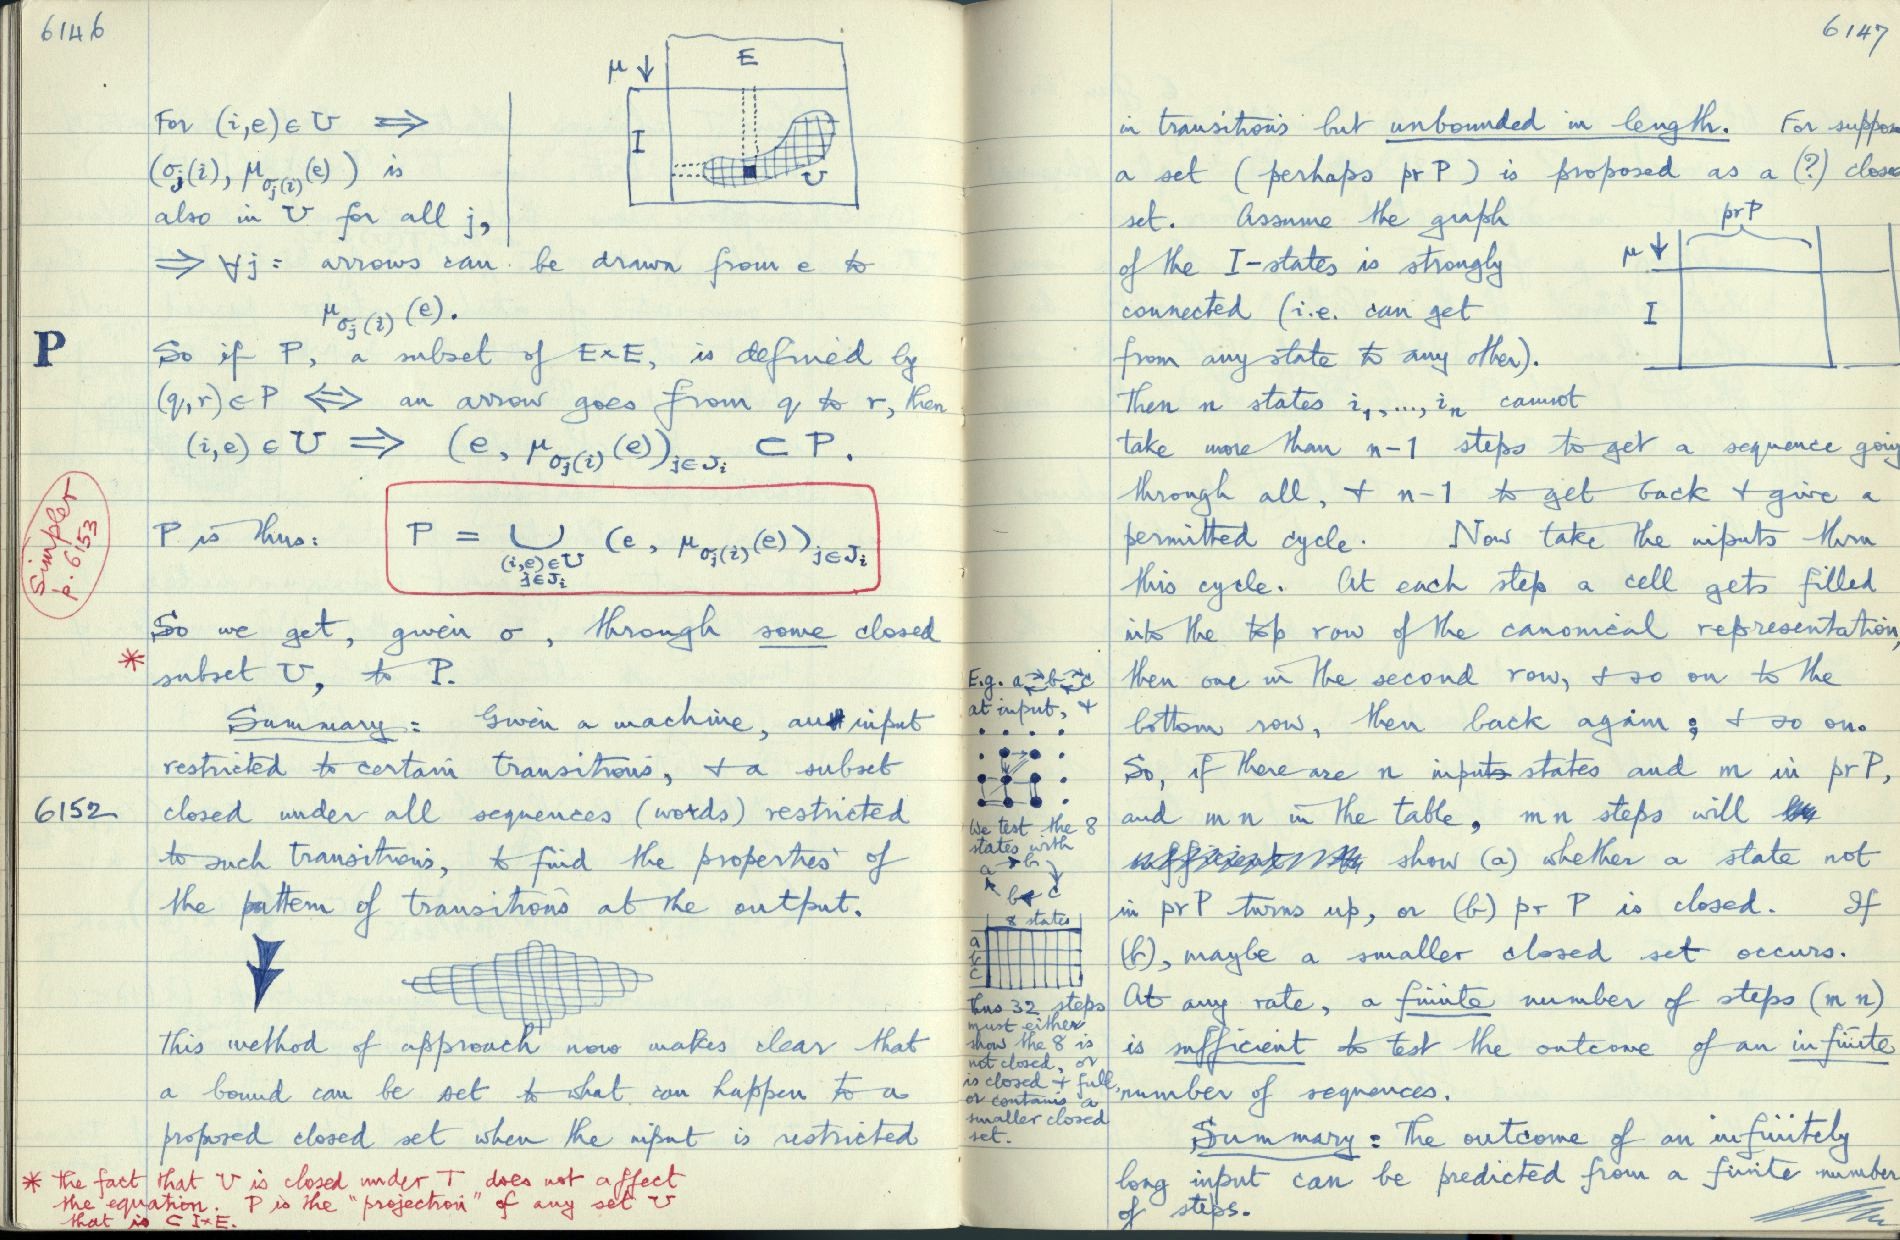 6146
For (i,e) ∈ U ⟹
(σj(i), μσj(i)(e)) is
also in U for all j,
μ ↓
E
I
U
⟹ ∀j: arrows can be drawn from e to
μσj(i)(e).
P
So if P, a subset of E×E, is defined by
(q,r) ∈ P ⟺ an arrow goes from q to r, then
(i,e) ∈ U ⟹ (e, μσj(i)(e))j∈Ji ⊂ P.
Simpler
p. 6153
P is thus:
P = ⋃ (e, μσj(i)(e))j∈Ji
(i,e)∈U
j∈Ji
So we get, given σ, through some closed
* subset U, to P.
Summary: Given a machine, an input
restricted to certain transitions, & a subset
6152
closed under all sequences (words) restricted
to such transitions, to find the properties of
the pattern of transitions at the output.
This method of approach now makes clear that
a bound can be set to what can happen to a
proposed closed set when the input is restricted
* the fact that U is closed under T does not affect
the equation. P is the "projection" of any set U
that is ⊂ I×E.
6147
in transitions but unbounded in length. For suppose
a set (perhaps pr P) is proposed as a (?) closed
set. Assume the graph
of the I-states is strongly
connected (i.e. can get
from any state to any other).
pr P
μ ↓
I
Then n states i1,..., in cannot
take more than n-1 steps to get a sequence going
through all, & n-1 to get back & give a
permitted cycle. Now take the inputs thru
this cycle. At each step a cell gets filled
into the top row of the canonical representation,
then one in the second row, & so on to the
bottom row, then back again; & so on.
So, if there are n inputs states and m in pr P,
and mn in the table, mn steps will
show (a) whether a state not
in pr P turns up, or (b) pr P is closed. If
(b), maybe a smaller closed set occurs.
At any rate, a finite number of steps (mn)
is sufficient to test the outcome of an infinite
number of sequences.
Summary: The outcome of an infinitely
long input can be predicted from a finite number
of steps.
E.g. a ⇄ b ⇄ c
at input, &
We test the 8
states with
a → b
b ← c
8 states
a
b
c
thus 32 steps
must either
show the 8 is
not closed, or
is closed & full,
or contains a
smaller closed
set.